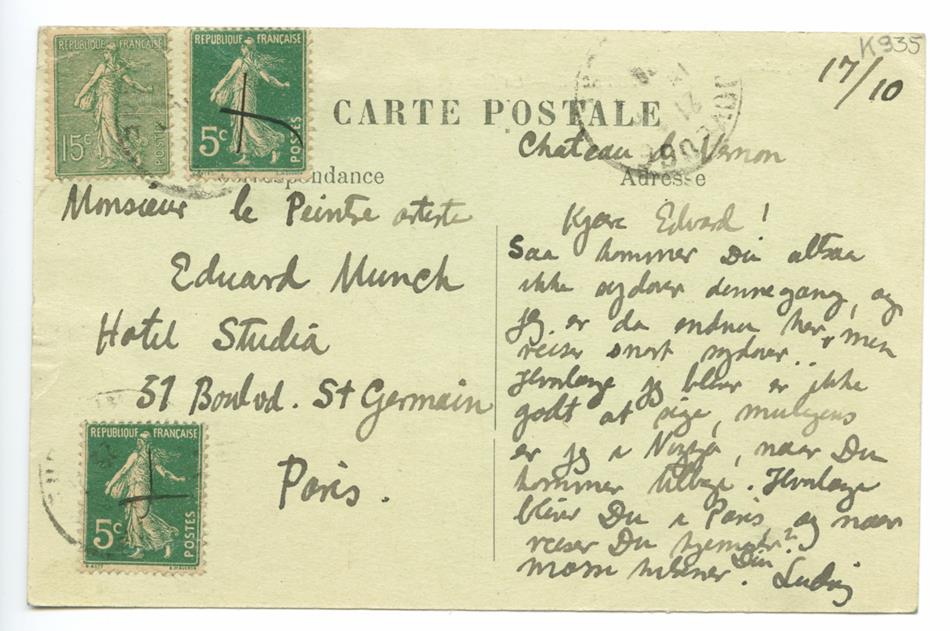 K935
17/10
REPUBLIQUE FRANÇAISE
15c
POSTES
REPUBLIQUE FRANÇAISE
5c
POSTES
CARTE POSTALE
Correspondance
Adresse
Monsieur le Peintre artiste
Eduard Munch
Hotel Studia
51 Boulvd. St Germain
Paris.
REPUBLIQUE FRANÇAISE
5c
POSTES
Chateau Vernon
Kjære Edvard!
Saa kommer Du altsaa
ikke sydover dennegang, og
jeg er da endnu her, men
reiser snart sydover.
Hvorlænge jeg bliver er ikke
godt at sige, muligens
er jeg i Nizza, naar Du
kommer tilbage. Hvorlænge
bliver Du i Paris og naar
reiser Du hjemover?
hilsener. Din
Ludvig